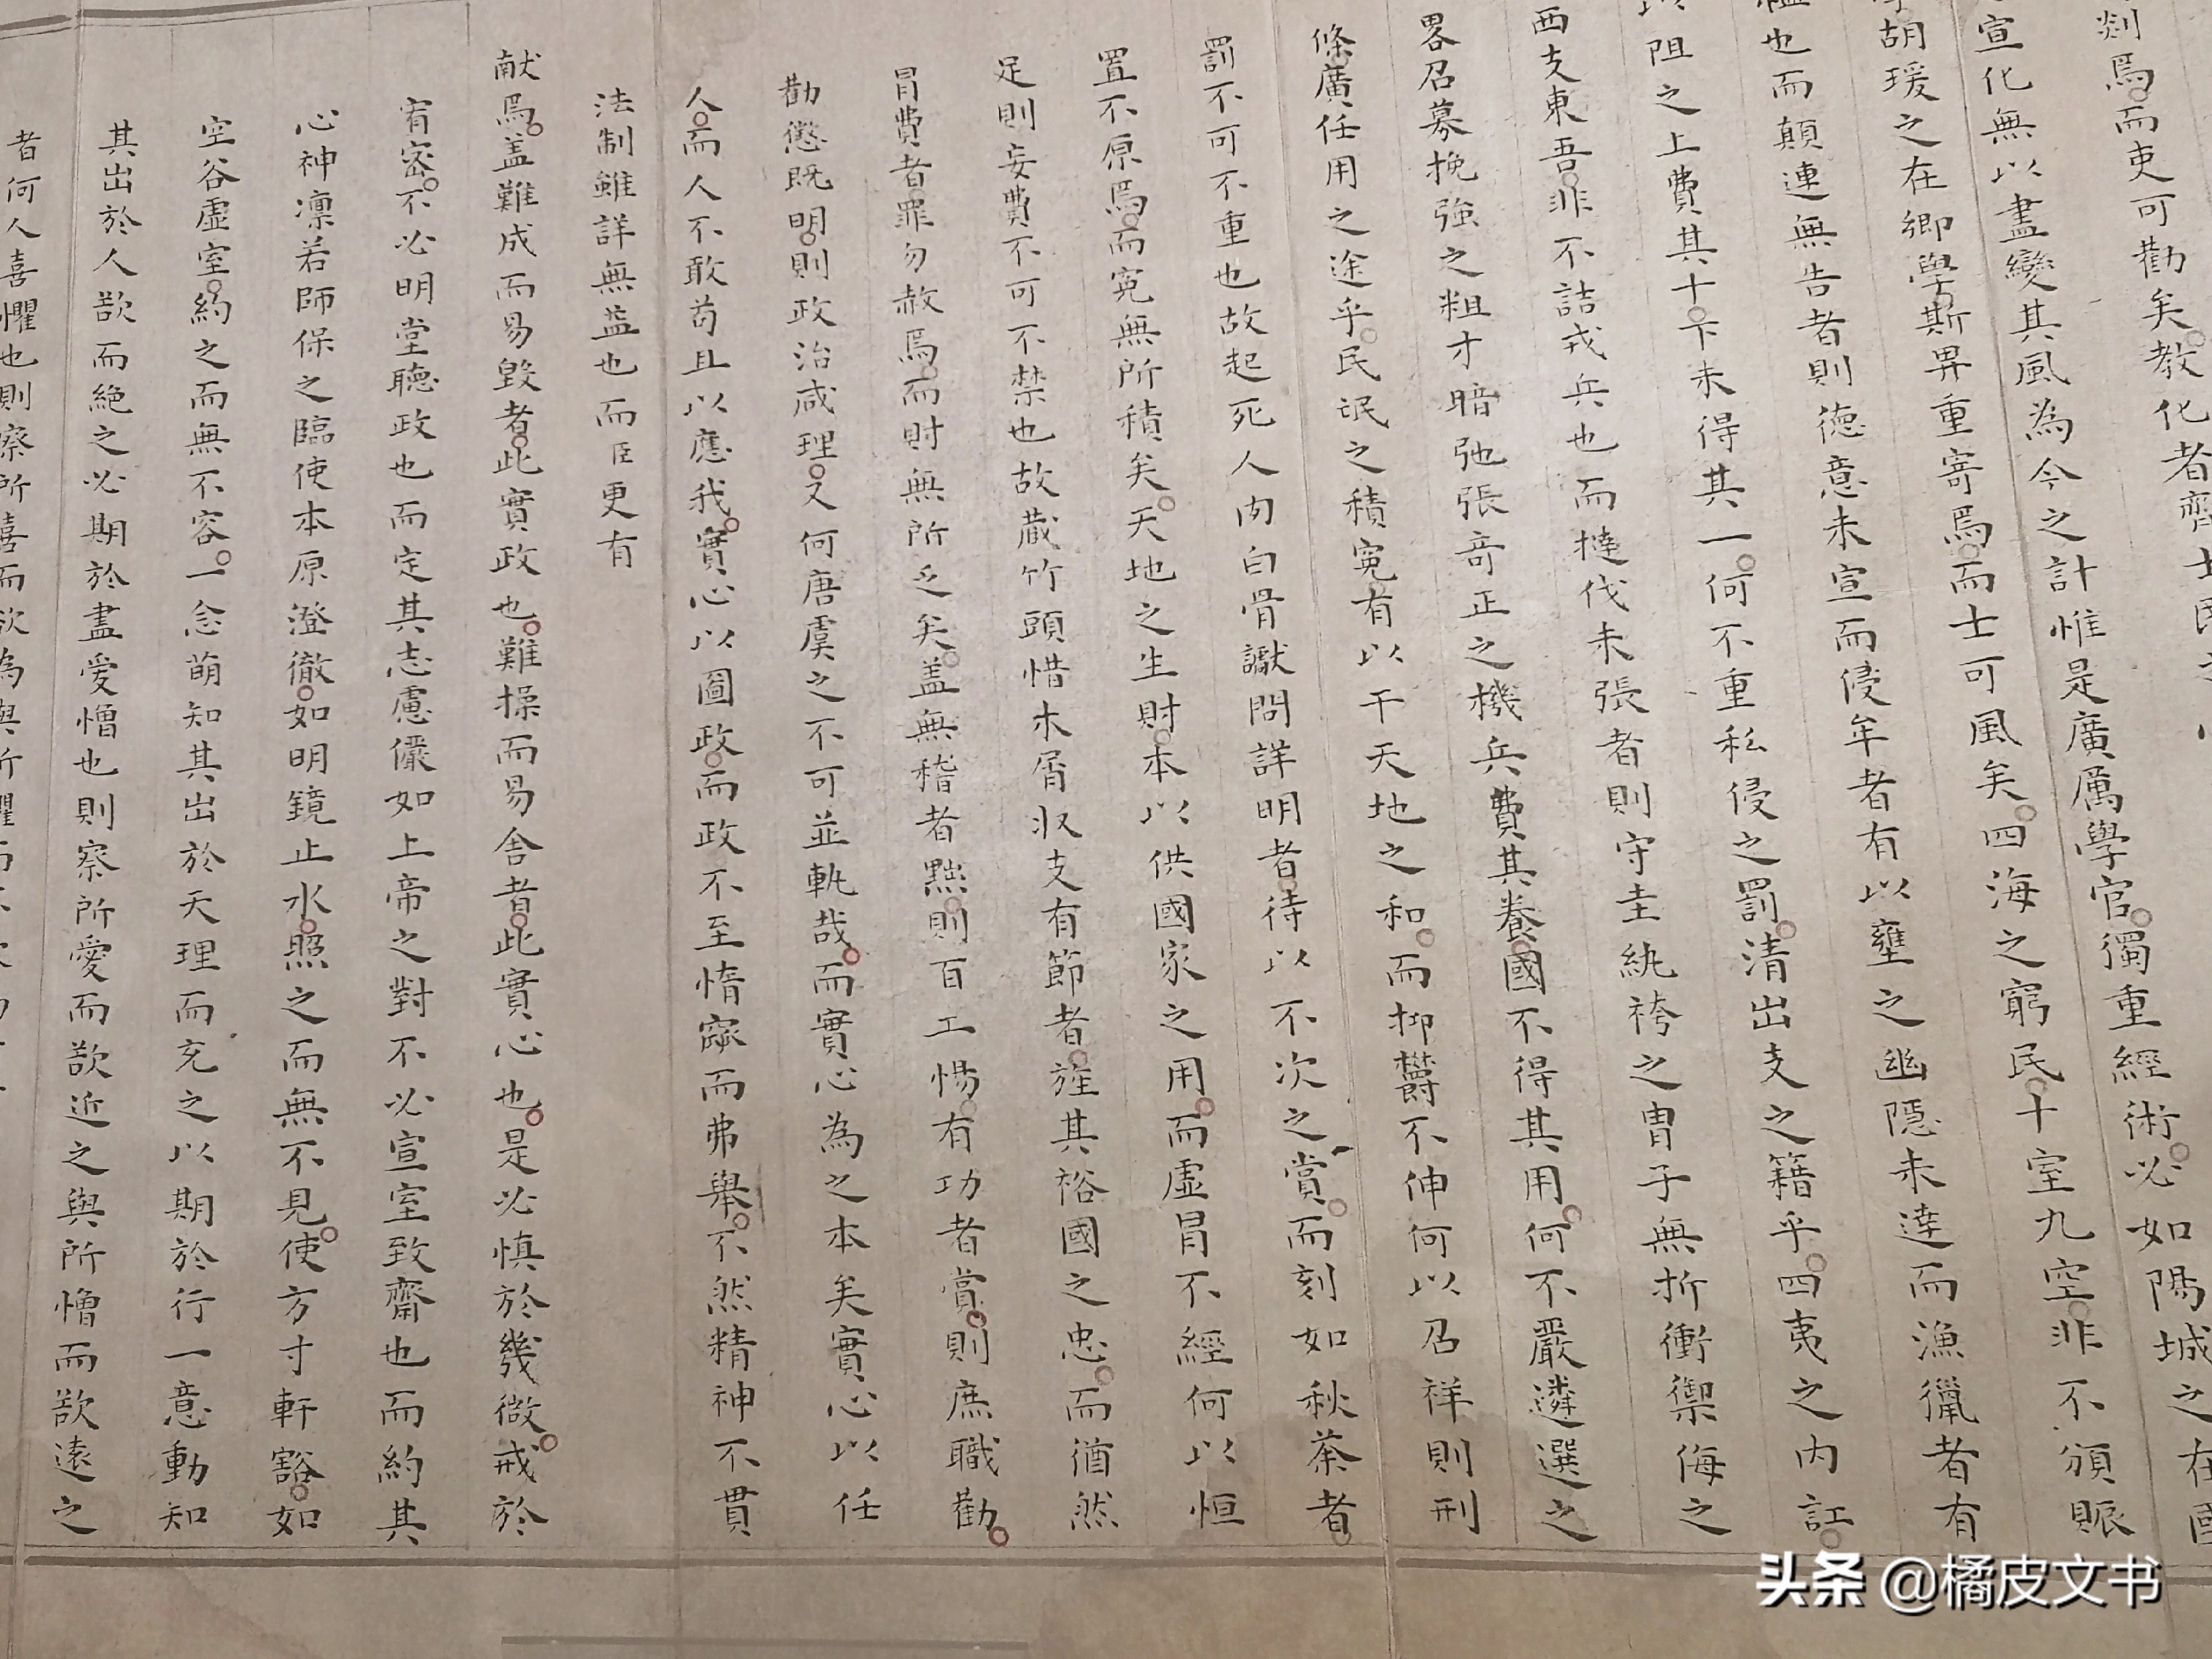 剡焉而吏可勸矣教化者齊士民之
宣化無以盡變其風為今之計惟是廣厲學官獨重經術必如陽城之在國
胡瑗之在鄉學斯畀重寄焉而士可風矣四海之窮民十室九空非不頒賑
也而顛連無告者則德意未宣而侵牟者有以壅之幽隱未達而漁獵者有
以阻之上費其十下未得其一何不重私侵之罰清出支之籍乎四夷之內訌
西支東吾非不詰戎兵也而撻伐未張者則守圭紈袴之冑子無折衝禦侮之
畧召募挽強之粗才暗弛張竒正之機兵費其養國不得其用何不嚴遴選之
條廣任用之途乎民氓之積寃有以干天地之和而抑欝不伸何以召祥則刑
罰不可不重也故起死人肉白骨讞問詳明者待以不次之賞而刻如秋荼者
置不原焉而寃無所積矣天地之生財本以供國家之用而虛冒不經何以恒
足則妄費不可不禁也故蔵竹頭惜木屑収支有節者旌其裕國之忠而酋然
冒費者罪勿赦焉而財無所乏矣盖無稽者黙則百工惕有功者賞則庶職勸
勸懲既明則政治咸理又何唐虞之不可並軌哉而實心為之本矣實心以任
人而人不敢苟且以應我實心以圖政而政不至惰窳而弗舉不然精神不貫
法制雖詳無益也而臣更有
献焉盖難成而易毀者此實政也難操而易舍者此實心也是必慎於幾微戒於
宥密不必明堂聽政也而定其志慮儼如上帝之對不必宣室致齋也而約其
心神凛若師保之臨使本原澄徹如明鏡止水照之而無不見使方寸軒豁如
空谷虛室約之而無不容一念萌知其出於天理而充之以期於行一意動知
其出於人欲而絶之必期於盡愛憎也則察所愛而欲近之與所憎而欲遠之
者何人喜懼也則察所喜而欲為與所懼而不欲
头条 @橘皮文书